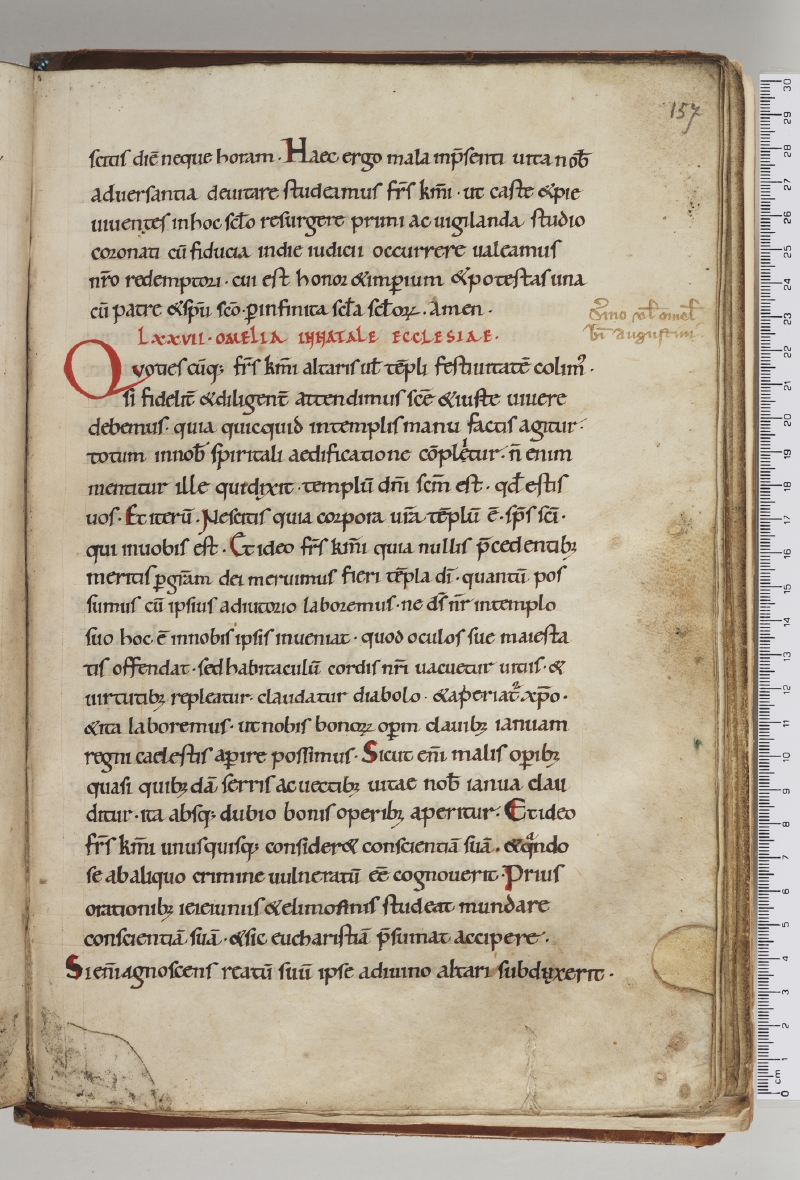 157
scitis diē neque horam. Haec ergo mala inp̄senti uita nob̄
aduersantia deuitare studeamus fr̄s km̄i. ut caste &pie
uiuentes inhoc sc̄lo resurgere primi ac uigilanda studio
coronati cū fiducia indie iudicii occurrere ualeamus
nr̄o redemptori. cui est honor &imperium &potestas una
cū patre &sp̄u sc̄o. ꝑinfinita sc̄la sc̄loꝝ. Amen.
Sermo ul̄ omel̄
bī augustini
LXXVII. OMELIA INNATALE ECCLESIAE.
Quoties cūq; fr̄s km̄i altaris ul̄ tēpli festiuitatē colim᾽.
si fidelit̄ &diligent̄ attendimus sc̄e &iuste uiuere
debemus. quia quicquid intemplis manu factis agitur.
totum innob̄ spiritali aedificatione cōpletur. n̄ enim
mentitur ille qui dixit. templū dn̄i sc̄m est. qd̄ estis
uos. Et iterū. Nescitis quia corpora ur̄a tēplū ē. sp̄s sc̄i.
qui inuobis est. Et ideo fr̄s km̄i quia nullis p̄cedentib;
meritis ꝑgr̄am dei meruimus fieri tēpla dī. quantū pos
sumus cū ipsius adiutorio laboremus. ne ds̄ nr̄ intemplo
suo hoc ē innobis ipsis inueniat. quod oculos sue maiesta
tis offendat. sed habitaculū cordis nr̄i uacuetur uitiis. &
uirtutib; repleatur. claudatur diabolo. &aperiat᾽ xp̄o.
&ita laboremus. ut nobis bonoꝝ oꝑm clauib; ianuam
regni caelestis aꝑire possimus. Sicut eni̅ malis oꝑib;
quasi quib; dā serris ac uectib; uitae nob̄ ianua clau
ditur. ita absq; dubio bonis operib; aperitur. Et ideo
fr̄s km̄i unusquisq; consider& conscientiā suā. &qͣndo
se abaliquo crimine uulneratū eē cognouerit. Prius
orationib; ieieiuniis &elimosinis studeat mundare
conscientiā suā. &sic eucharistiā p̄sumat accipere.
Si eni̅ agnoscens reatū suū ipse adiuino altari subduxerit.